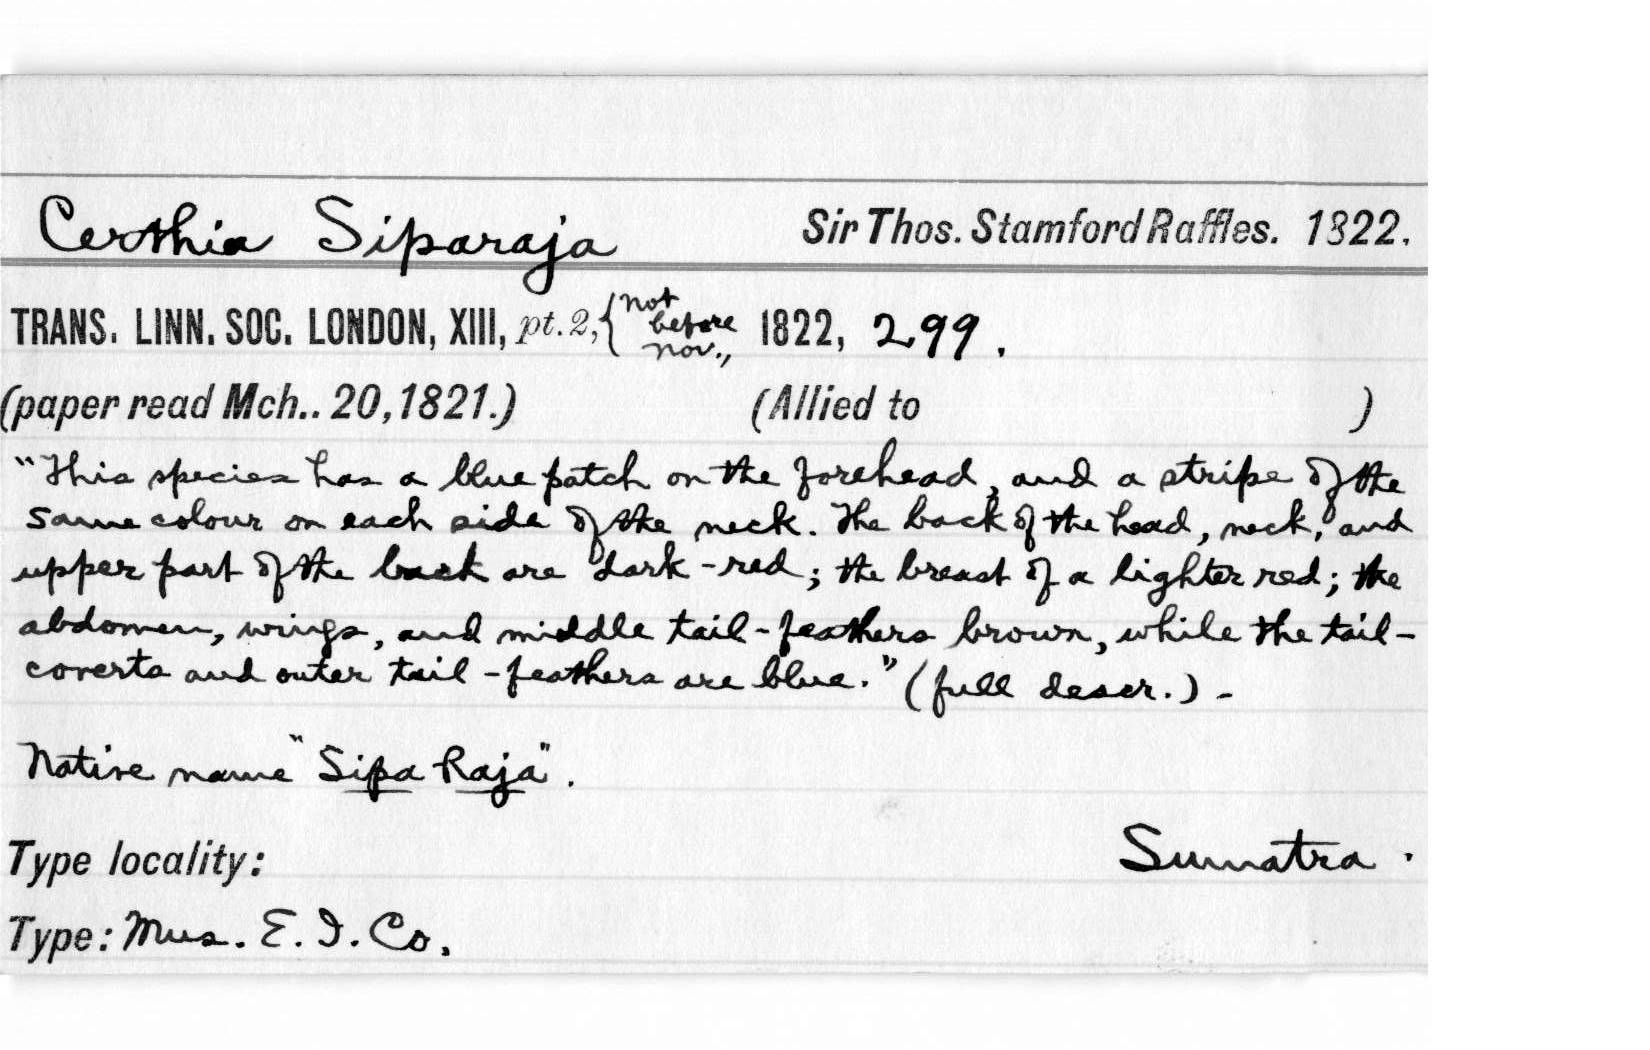 Certhia Siparaja Sir Thos. Stamford Raffles. 1822.
TRANS. LINN. SOC. LONDON, XIII, pt. 2, { not before Nov., 1822, 299.
(paper read Mch.. 20, 1821.) (Allied to )
"This species has a blue patch on the forehead, and a stripe of the
same colour on each side of the neck. The back of the head, neck, and
upper part of the back are dark-red; the breast of a lighter red; the
abdomen, wings, and middle tail-feathers brown, while the tail-
coverts and outer tail-feathers are blue." (full descr.) -
Native name "Sipa Raja".
Type locality: Sumatra.
Type: Mus. E. I. Co.